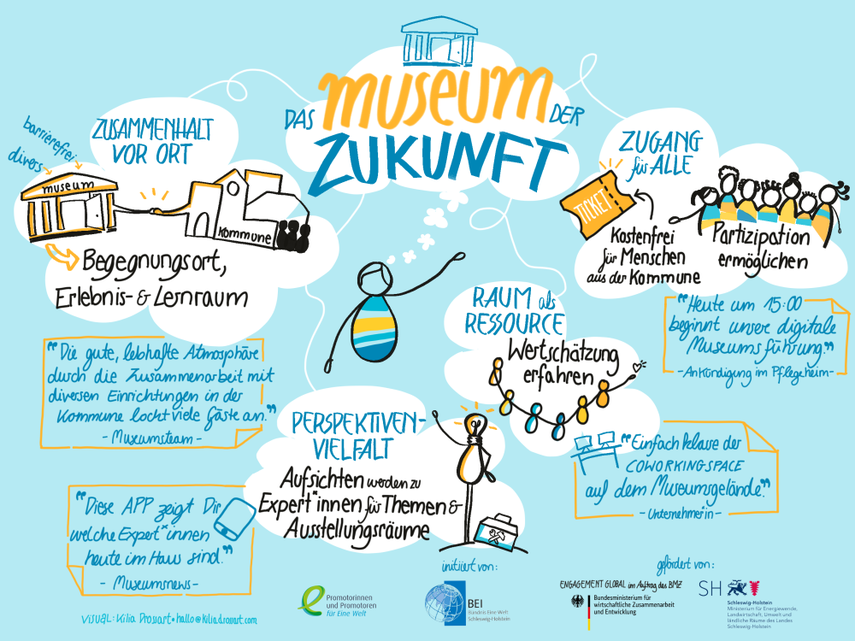 DAS MUSEUM DER
ZUKUNFT
ZUSAMMENHALT
VOR ORT
barrierefrei
divers
museum
Kommune
Begegnungsort,
Erlebnis- & Lernraum
"Die gute, lebhafte Atmosphäre
durch die Zusammenarbeit mit
diversen Einrichtungen in der
Kommune lockt viele Gäste an."
- Museumsteam -
ZUGANG
für ALLE
TICKET
Kostenfrei
für Menschen
aus der Kommune
Partizipation
ermöglichen
"Heute um 15:00
beginnt unsere digitale
Museumsführung."
- Ankündigung im Pflegeheim -
RAUM als
RESSOURCE
Wertschätzung
erfahren
"Einfach klasse der
COWORKINGSPACE
auf dem Museumsgelände."
- Unternehmerin -
PERSPEKTIVEN-
VIELFALT
Aufsichten werden zu
Expert*innen für Themen &
Ausstellungsräume
"Diese APP zeigt Dir
welche Expert*innen
heute im Haus sind."
- Museumsnews -
VISUAL: Kilia Drosart • hallo@kiliadrosart.com
initiiert von:
Promotorinnen
und Promotoren
für Eine Welt
BEI
Bündnis Eine Welt
Schleswig-Holstein
gefördert von:
ENGAGEMENT GLOBAL im Auftrag des BMZ
Bundesministerium für
wirtschaftliche Zusammenarbeit
und Entwicklung
SH
Schleswig-Holstein
Ministerium für Energiewende,
Landwirtschaft, Umwelt und
ländliche Räume des Landes
Schleswig-Holstein